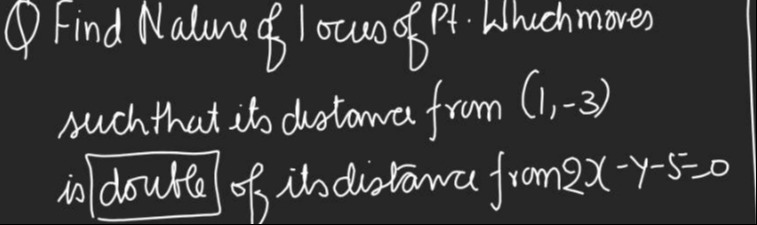 Q Find Nature of locus of Pt. Which moves
such that its distance from (1,-3)
is double of its distance from 2x-y-5=0